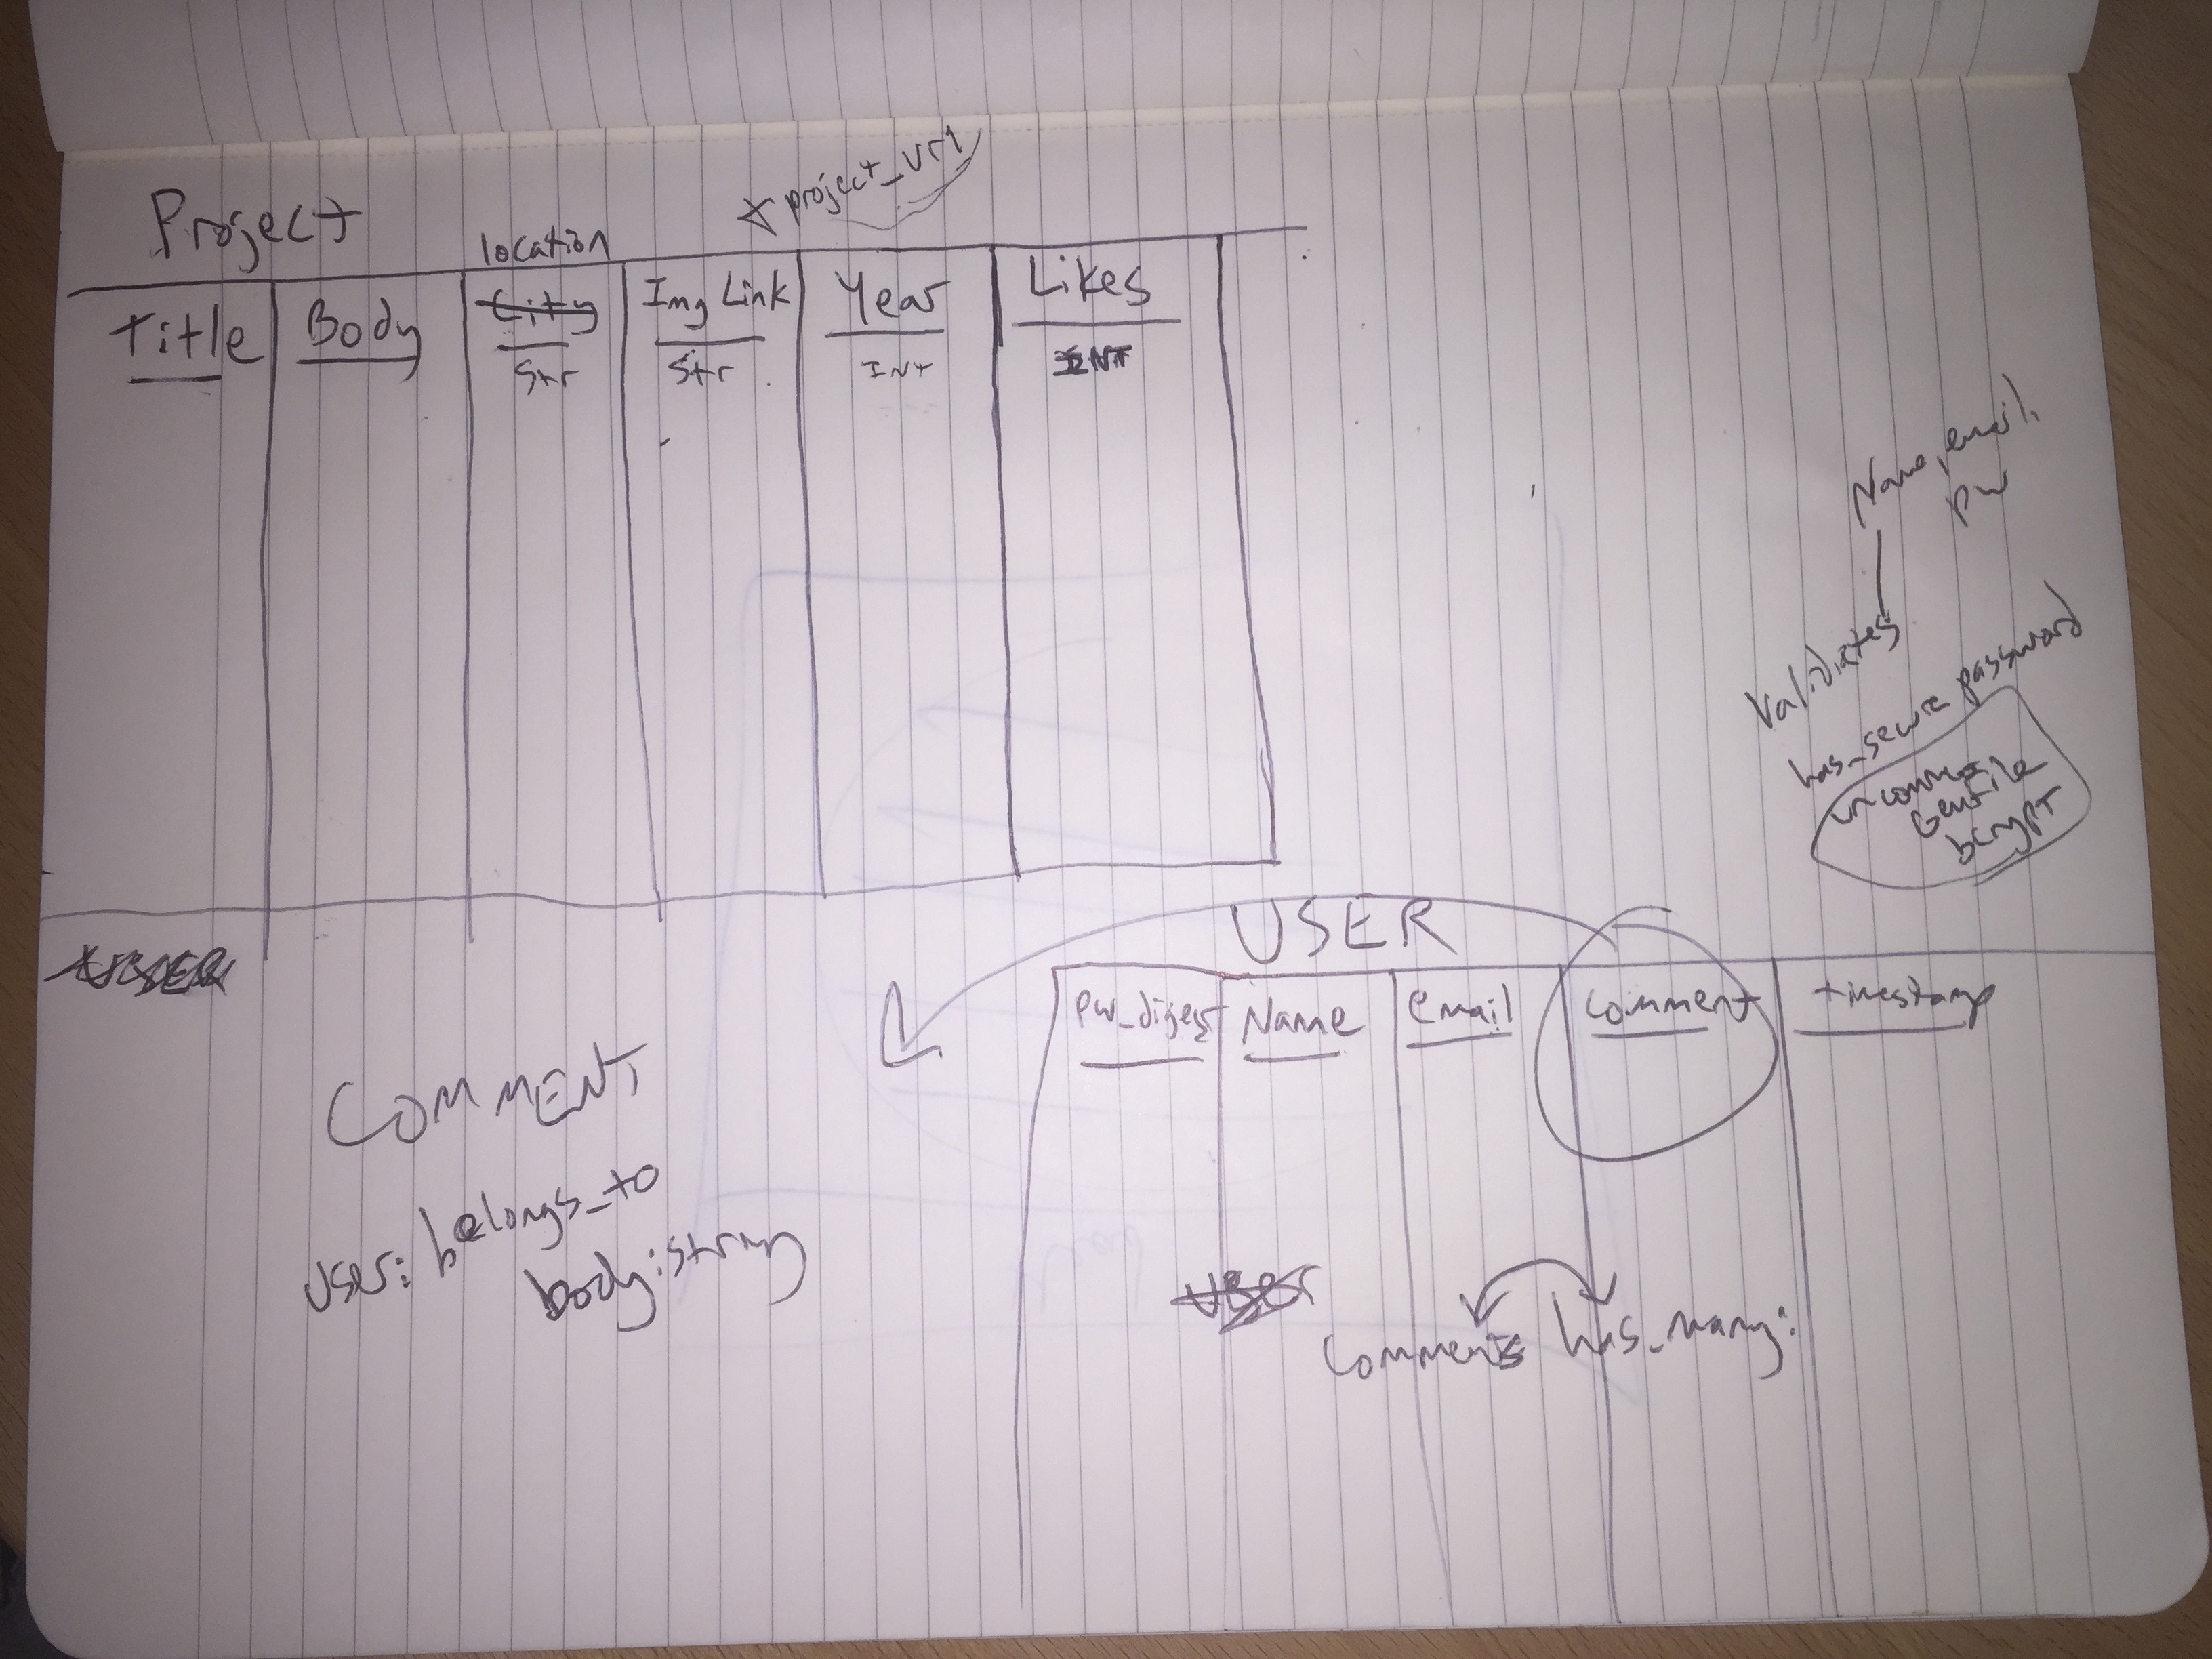 Project
location
project_url
Title
Body
City
Str
Img Link
Str
Year
INT
Likes
INT
Name, email,
pw
Validates
has_secure password
uncomment
Gemfile
bcrypt
USER
USER
pw_digest
Name
email
comment
timestamp
COMMENT
user: belongs_to
body: string
User
Comments has_many: